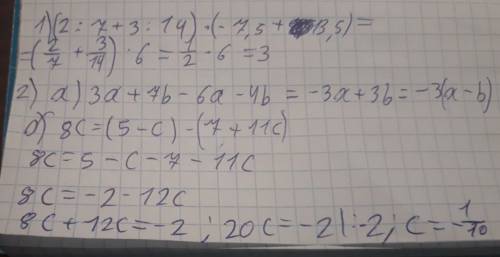 1) (2 : 7 + 3 : 14) · (- 7,5 + 13,5) =
= (2/7 + 3/14) · 6 = 1/2 · 6 = 3
2) а) 3a + 7b - 6a - 4b = -3a + 3b = -3(a - b)
б) 8c = (5 - c) - (7 + 11c)
8c = 5 - c - 7 - 11c
8c = -2 - 12c
8c + 12c = -2 ; 20c = -2 | : -2 ; c = -1/10